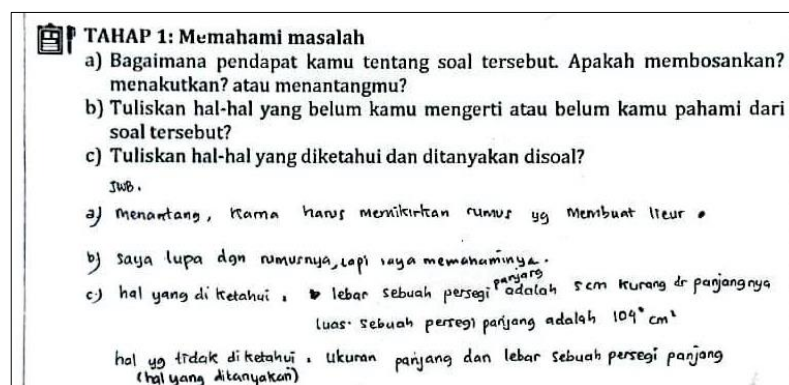 TAHAP 1: Memahami masalah
a) Bagaimana pendapat kamu tentang soal tersebut. Apakah membosankan?
menakutkan? atau menantangmu?
b) Tuliskan hal-hal yang belum kamu mengerti atau belum kamu pahami dari
soal tersebut?
c) Tuliskan hal-hal yang diketahui dan ditanyakan disoal?
JWB.
a) menantang, karna harus memikirkan rumus yg membuat lieur.
b) saya lupa dgn rumusnya, tapi saya memahaminya.
c) hal yang di ketahui : lebar sebuah persegi panjang adalah 5cm kurang dr panjangnya
luas sebuah persegi panjang adalah 104 cm²
hal yg tidak di ketahui : ukuran panjang dan lebar sebuah persegi panjang
(hal yang ditanyakan)